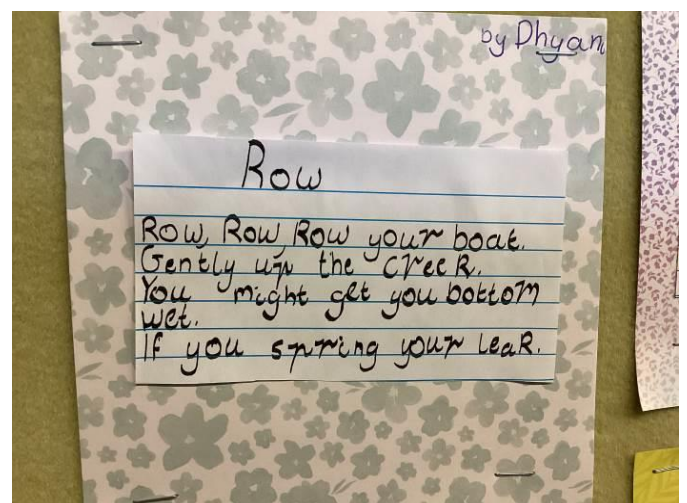 by Dhyan
Row
Row, Row, Row your boat.
Gently up the creek.
You might get you bottom
wet.
If you spring your leak.